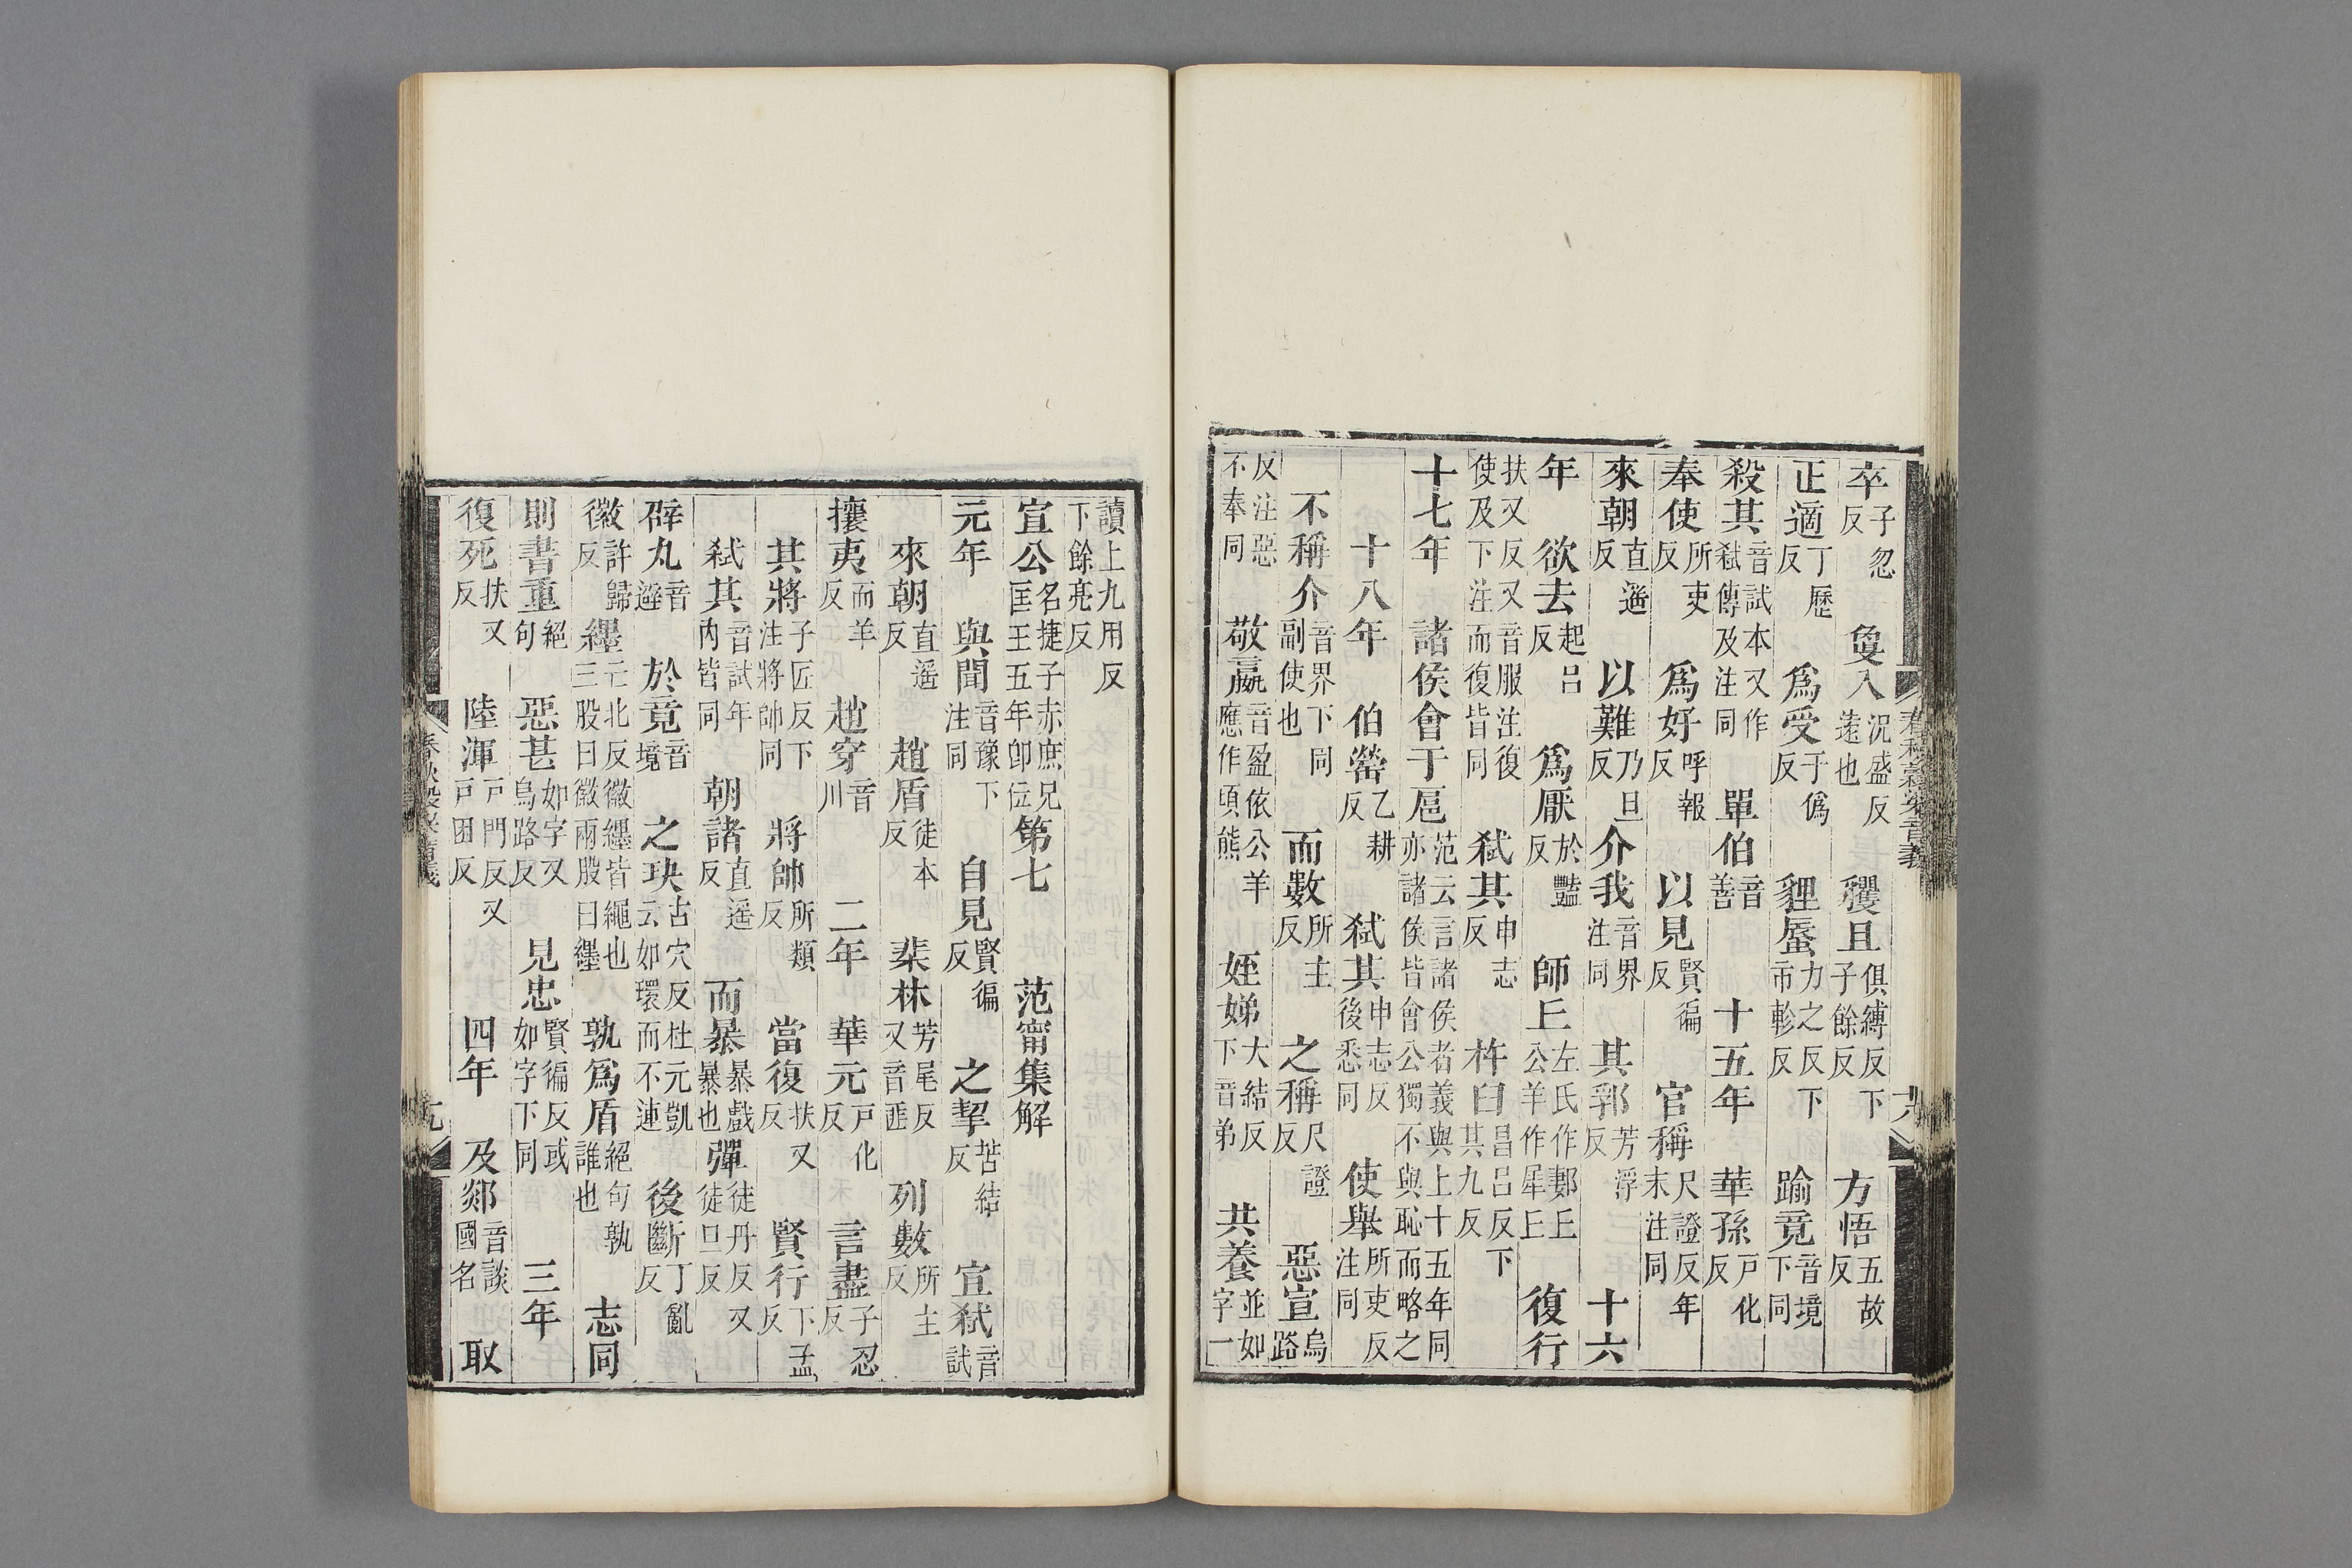 卒子忽反 敻入況盛反遠也 貜且俱縛反下子餘反 方悟五故反
正適丁歷反 爲受于僞反 貍蜃力之反下市軫反 踰竟音境下同
殺其音試本又作弒傳及注同 單伯音善 十五年 華孫戸化反
奉使所吏反 爲好呼報反 以見賢徧反 官稱尺證反年末注同
來朝直遥反 以難乃旦反 介我音界注同 其郛芳浮反 十六
年 欲去起呂反 爲厭於豔反 師丘左氏作郪丘公羊作犀丘 復行
扶又反又音服注復使及下注而復皆同 弒其申志反 杵臼昌呂反下其九反
十七年 諸侯會于扈范云言諸侯者義與上十五年同亦諸侯皆會公獨不與恥而略之
十八年 伯罃乙耕反 弒其申志反後悉同 使舉所吏反注同
不稱介音界下同副使也 而數所主反 之稱尺證反 惡宣烏路
反注惡不奉同 敬嬴音盈依公羊應作頃熊 姪娣大結反下音弟 共養並如字一
讀上九用反下餘亮反
宣公名捷子赤庶兄匡王五年卽位第七 范甯集解
元年 與聞音豫下注同 自見賢徧反 之挈苦結反 宣弒音試
來朝直遥反 趙盾徒本反 棐林芳尾反又音匪 列數所主反
攘夷而羊反 趙穿音川 二年 華元戸化反 言盡子忍反
其將子匠反下注將帥同 將帥所類反 當復扶又反 賢行下孟反
弒其音試年內皆同 朝諸直遥反 而暴暴戲暴也 彈徒丹反又徒旦反
辟丸音避 於竟音境 之玦古穴反杜元凱云如環而不連 後斷丁亂反
徽許歸反 纆亡北反徽纆皆繩也三股曰徽兩股曰纆 孰爲盾絕句孰誰也 志同
則書重絕句 惡甚如字又烏路反 見忠賢徧反或如字下同 三年
復死扶又反 陸渾戸門反又戸困反 四年 及郯音談國名 取